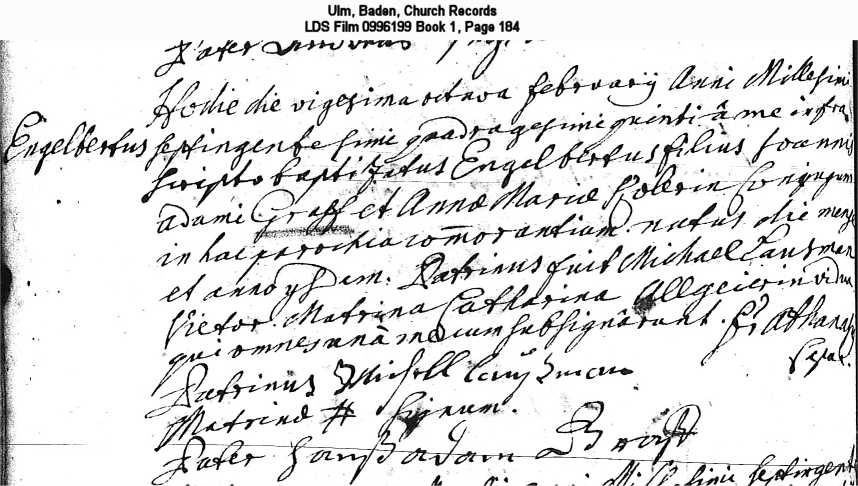 Ulm, Baden, Church Records
LDS Film 0996199 Book 1, Page 184
Pater
Hodie die vigesima octava february Anni Millesimi
Engelbertus septingentesimi quadragesimi quinti â me infra
scripto baptizatus Engelbertus filius Joannis
adami Graff et Annæ Mariæ Conjugum
in hac parochia com̄orantium. natus die mense
et anno ysdem. Patrinus fuit Michael Lausman
Victor. Matrina Catharina Allgeierin vidua
qui omnes unà mecum subsignârunt. fr Athanas
Patrinus Michell
Matrinæ # signum.
Pater hanß adam
Millesimi septingent